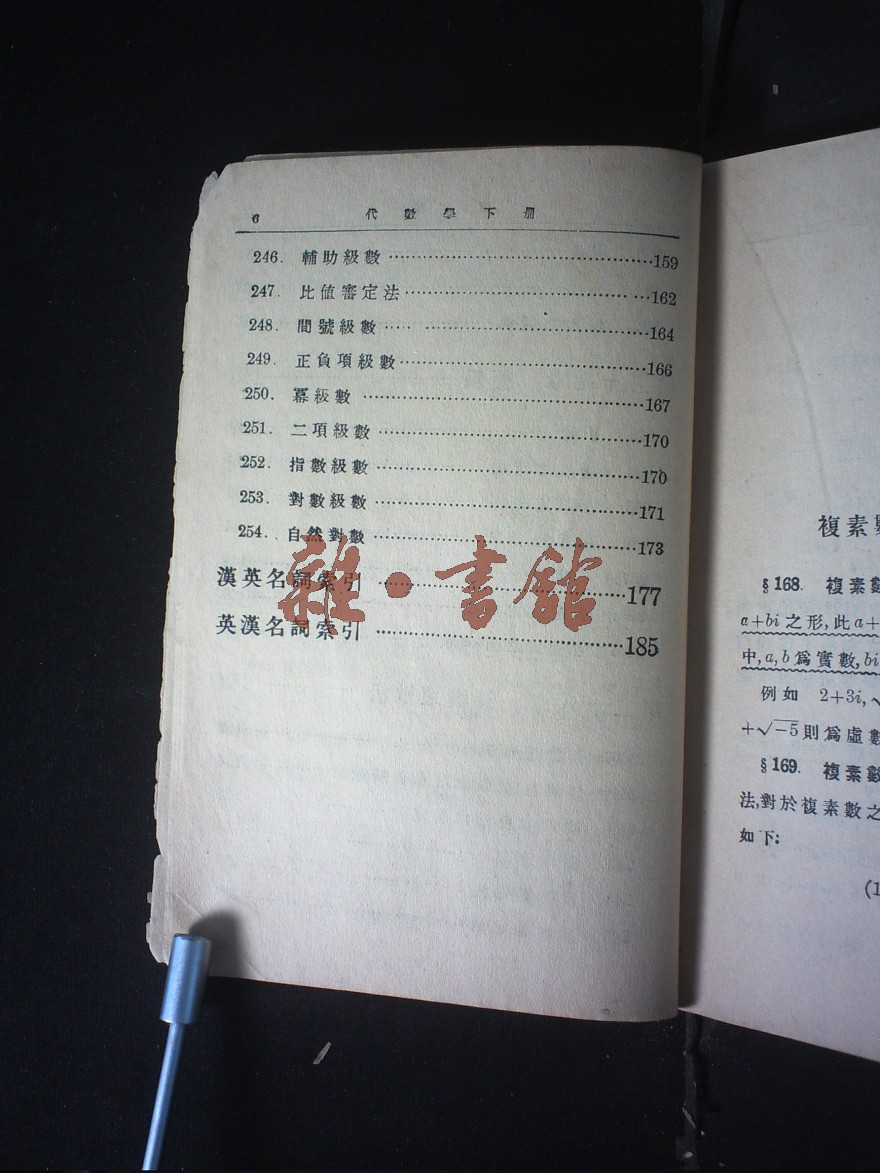 6 代數學下册
246. 輔助級數……159
247. 比值審定法……162
248. 間號級數……164
249. 正負項級數……166
250. 冪級數……167
251. 二項級數……170
252. 指數級數……170
253. 對數級數……171
254. 自然對數……173
漢英名詞索引……177
英漢名詞索引……185
雜·書館
複素
§168. 複素
a+bi 之形,此 a+
中,a,b 爲實數,bi
例如 2+3i,
+√−5 則爲虛
§169. 複素
法,對於複素數之
如下:
(1